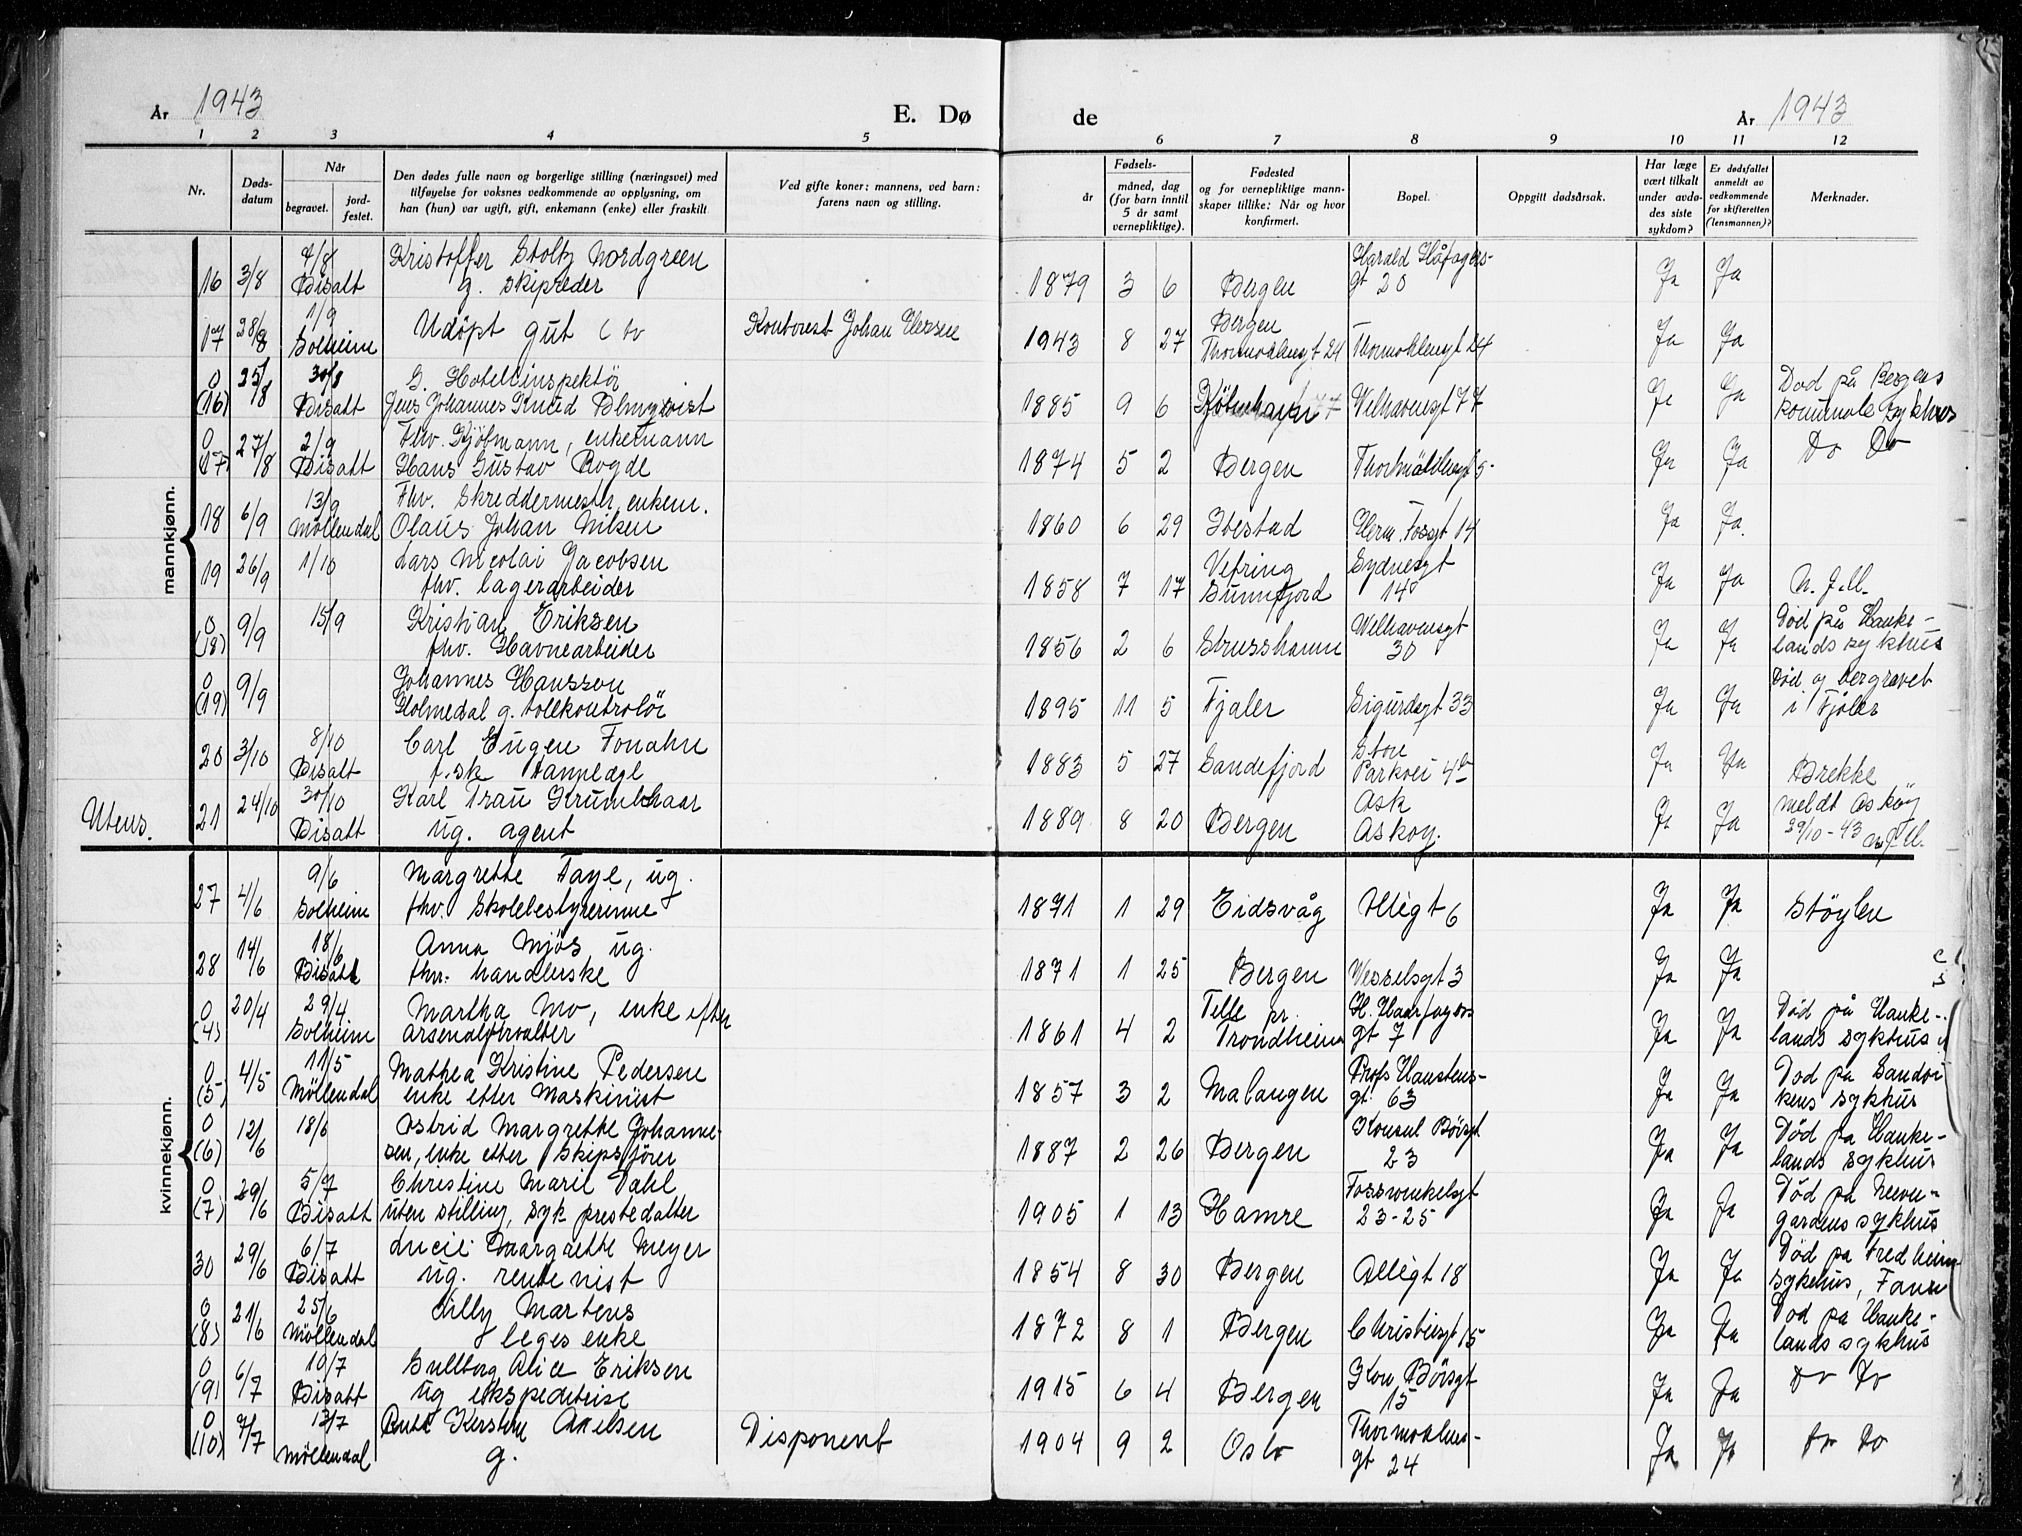 År 1943 E. Dø de År 1943
1 2 3 4 5 6 7 8 9 10 11 12
Nr. Døds-datum Når begravet. jord-festet. Den dødes fulle navn og borgerlige stilling (næringsvei) med tilføyelse for voksnes vedkommende av opplysning, om han (hun) var ugift, gift, enkemann (enke) eller fraskilt Ved gifte koner: mannens, ved barn: farens navn og stilling. Fødsels- år måned, dag (for barn inntil 5 år samt vernepliktige). Fødested og for vernepliktige mann-skaper tillike: Når og hvor konfirmert. Bopel. Oppgitt dødsårsak. Har læge vært tilkalt under avdø-des siste sykdom? Er dødsfallet anmeldt av vedkommende for skifteretten (lensmannen)? Merknader.
mannkjønn.
4/8 Kristoffer Stoltz Nordgreen Harald Håfagers-
16 3/8 Bisatt g. skipreder 1879 3 6 Bergen gt 20 Ja Ja
1/9 Bergen
17 28/8 Solheim Udøpt gut Kontorist Johan 1943 8 27 Thormøhlensgt 24 Thormøhlensgt 24 Ja Ja
0 25/8 30/8 G. Hotellinspektør Død på Bergens
(16) Bisatt Jens Johannes Knud Almqvist 1885 9 6 Kjöbenhavn Welhavensgt 77 Ja Ja kommunale sykehus
0 27/8 2/9 Fhv. Kjöbmann, enkemann
(17) Bisatt Hans Gustav Rogde 1874 5 2 Bergen Ja Ja Do Do
13/9 Fhv. Skreddermester, enkem.
18 6/9 Möllendal Olaus Johan Nilsen 1860 6 29 Ibestad Herm. Fossgt 14 Ja Ja.
1/10 Lars Nicolai Jacobsen Vefring Sydnesgt
19 26/9 fhv. lagerarbeider 1858 7 17 Sunnfjord 14 Ja Ja N. J. M.
0 9/9 15/9 Kristian Eriksen Welhavensgt Død på Hauke-
(18) fhv. Havnearbeider 1856 2 6 Strusshamn 30 Ja Ja lands sykhus
0 9/9 Johannes Hansson Død og bergravet
(19) Holmedal g. tollkontrolör 1895 11 5 Fjaler Sigurdsgt 33 Ja Ja i Fjaler
8/10 Carl Eugen Fonahn Store
20 3/10 Bisatt f.sk tannlege 1883 5 27 Sandefjord Parkvei 4b Ja Ja Brekke
30/10 Karl Trau Krumbhaar Ask meldt Askøy
Utens. 21 24/10 Bisatt ug. agent 1889 8 20 Bergen Askøy. Ja Ja 29/10-43 N.J.M.
kvinnekjønn.
9/6 Margrethe Faye, ug.
27 4/6 Solheim fhv. Skolebestyrerinne 1871 1 29 Eidsvåg Allégt 6 Ja Ja Støylen
18/6 Anna Mjös ug.
28 14/6 Bisatt fhv. handlerske 1871 1 25 Bergen Wesselsgt 3 Ja Ja
0 20/4 29/4 Martha Mo, enke efter Tille pr. H. Haarfagers Død på Hauke-
(4) Solheim arsenalforvalter 1861 4 2 Trondheim gt 7 Ja Ja lands sykhus
0 4/5 11/5 Mathea Kristine Pedersen Profs Hansteens- Død på Sandvi
(5) Möllendal enke etter Maskinist 1857 3 2 Malangen gt. 63 Ja Ja kens sykhus
0 12/6 18/6 Astrid Margrethe Johanne- Konsul Börsgt Død på Hauke-
(6) sen, enke etter skipsfører 1887 2 26 Bergen 23 Ja Ja lands sykhus
0 29/6 5/7 Christine Marie Dahl Fosswinkelsgt Død på Neevn-
(7) Bisatt uten stilling, syk prestedatter 1905 1 13 Hamre 23-25 Ja Ja gardens sykhus
6/7 Lucie Margrethe Meyer Død på Fredheim
30 29/6 Bisatt ug. rentenist 1854 8 30 Bergen Allégt 18 Ja Ja sykehus, Fana
0 21/6 25/6 Lilly Martens Død på Hauke-
(8) Möllendal leges enke 1872 8 1 Bergen Christiesgt 15 Ja Ja lands sykhus
0 6/7 10/7 Gullborg Alice Eriksen Kon. Börsgt
(9) Bisatt ug ekspeditrise 1915 6 4 Bergen 15 Ja Ja Do Do
0 7/7 13/7 Ruth Kersten Axelsen Thormøhlens-
(10) Möllendal g. Disponent 1904 9 2 Oslo gt 24 Ja Ja Do Do